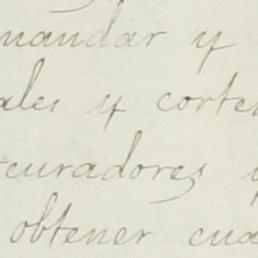 mandar y
ales y corte
curadores y
obtener cua